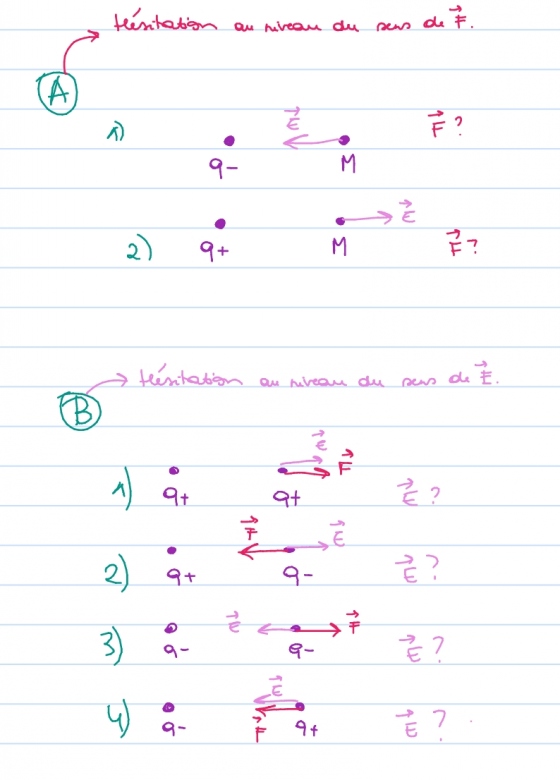 Hésitation au niveau du sens de F⃗.
A
1) E⃗ F⃗ ?
q- M
E⃗
2) q+ M F⃗ ?
Hésitation au niveau du sens de E⃗.
B
E⃗ F⃗
1) q+ q+ E⃗ ?
F⃗ E⃗
2) q+ q- E⃗ ?
E⃗ F⃗
3) q- q- E⃗ ?
E⃗
4) q- F⃗ q+ E⃗ ?